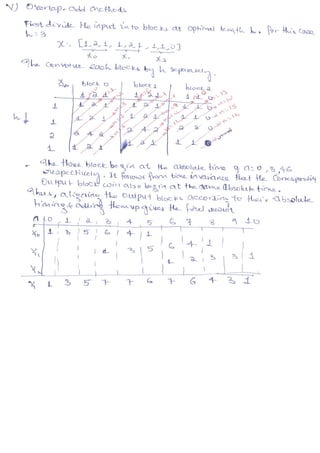 v) Overlap-add methods
First divide the input into blocks at optimal length L. For this case
L = 3
X = [1,2,1, 1,2,1, 1,1,0]
X0 X1 X2
The convolve each blocks by h separately.
block 0 block 1 block 2
1 2 1 1 2 1 1 1 0
h ↓ 1 1 2 1 1 2 1 1 1 0
1 1 2 1 1 2 1 1 1 0
2 2 4 2 2 4 2 2 2 0
1 1 2 1 1 2 1 1 1 0
- The three block begin at the absolute time of n=0,3,&6
respectively. It follows from time invariance that the corresponding
output block will also begin at the same absolute time.
Thus, aligning the output blocks according to their absolute
timing & adding them up gives the final result
n 0 1 2 3 4 5 6 7 8 9 10
Y0 1 3 5 6 4 1
Y1 1 3 5 6 4 1
Y2 1 2 3 3 1
Y 1 3 5 7 7 6 7 6 4 3 1